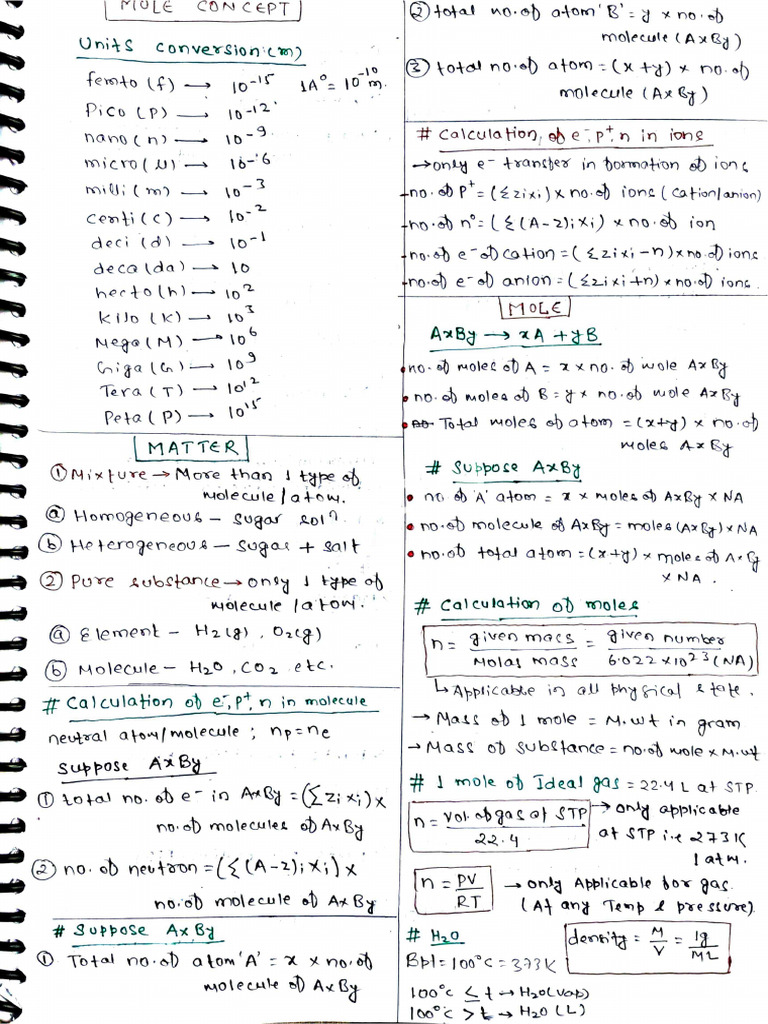 MOLE CONCEPT
Units conversion:(m)
femto (f) → 10⁻¹⁵ 1A° = 10⁻¹⁰ m.
Pico (P) → 10⁻¹²
nano (n) → 10⁻⁹
micro (μ) → 10⁻⁶
milli (m) → 10⁻³
centi (c) → 10⁻²
deci (d) → 10⁻¹
deca (da) → 10
hecto (h) → 10²
Kilo (K) → 10³
Mega (M) → 10⁶
Giga (G) → 10⁹
Tera (T) → 10¹²
Peta (P) → 10¹⁵
MATTER
① Mixture → More than 1 type of
molecule / atom.
ⓐ Homogeneous - sugar solⁿ
ⓑ Heterogeneous - sugar + salt
② Pure substance → only 1 type of
molecule / atom.
ⓐ Element - H₂(g), O₂(g)
ⓑ Molecule - H₂O, CO₂ etc.
# Calculation of e⁻, p⁺, n in molecule
neutral atom/molecule ; np = ne
Suppose AxBy
① total no. of e⁻ in AxBy = (Σzixi) ×
no. of molecules of AxBy
② no. of neutron = (Σ(A-z)i xi) ×
no. of molecule of AxBy
# Suppose AxBy
① Total no. of atom 'A' = x × no. of
molecule of AxBy
② total no. of atom 'B' = y × no. of
molecule (AxBy)
③ total no. of atom = (x+y) × no. of
molecule (AxBy)
# Calculation of e⁻, p⁺, n in ions
→ only e⁻ transfer in formation of ions
-no. of p⁺ = (Σzixi) × no. of ions (cation/anion)
-no. of n° = (Σ(A-z)i xi) × no. of ion
-no. of e⁻ of cation = (Σzixi - n) × no. of ions
-no. of e⁻ of anion = (Σzixi + n) × no. of ions
MOLE
AxBy → xA + yB
• no. of moles of A = x × no. of mole AxBy
• no. of moles of B = y × no. of mole AxBy
• Total moles of atom = (x+y) × no. of
moles AxBy
# Suppose AxBy
• no of 'A' atom = x × moles of AxBy × NA
• no. of molecule of AxBy = moles (AxBy) × NA
• no. of total atom = (x+y) × moles of AxBy
× NA.
# Calculation of moles
n = given mass / Molas mass = given number / 6.022 × 10²³ (NA)
↳ Applicable in all physical state.
→ Mass of 1 mole = M.wt in gram
→ Mass of substance = no. of mole × M.wt
# 1 mole of Ideal gas = 22.4 L at STP
n = vol. of gas at STP / 22.4 → only applicable
at STP i.e 273K
1 atm.
n = PV / RT → only Applicable for gas.
(At any Temp & pressure).
# H₂O
density = M / V = 1g / ML
Bpt = 100°C = 373K
100°C ≤ t → H₂O (vap)
100°C > t → H₂O (L)